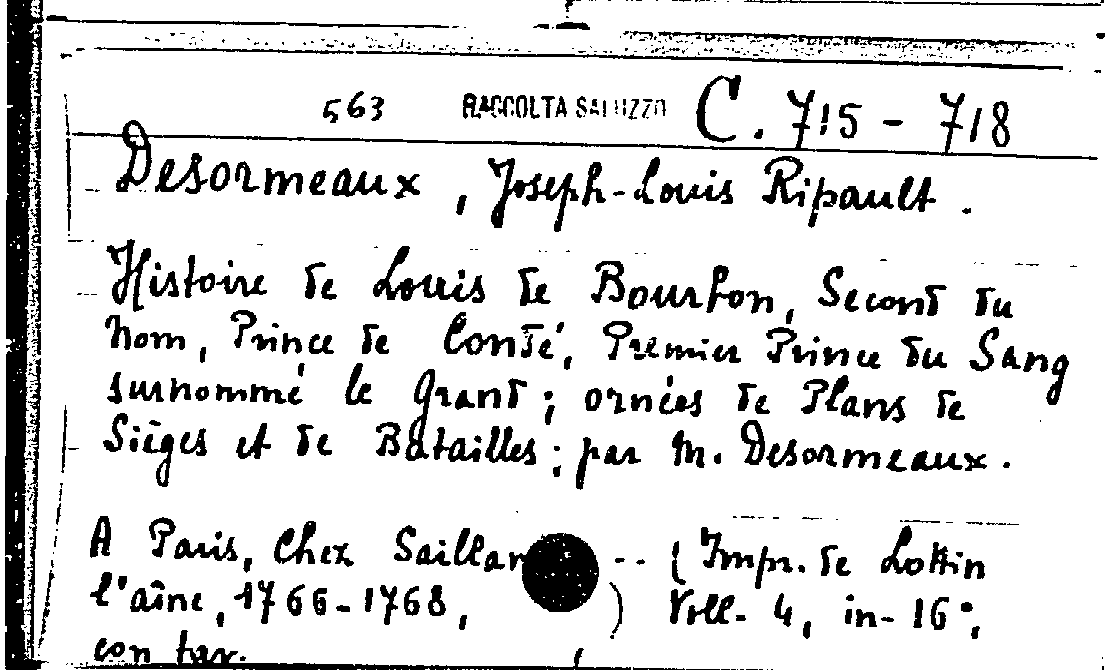 563 RACCOLTA SALUZZO C. 715 - 718
Desormeaux, Joseph-Louis Ripault.
Histoire de Louis de Bourbon, Second du
Nom, Prince de Condé, Premier Prince du Sang
surnommé le Grand; ornées de Plans de
Sièges et de Batailles; par M. Desormeaux.
A Paris, Chez Saillan -- (Impr. de Lottin
l'aîne, 1766-1768, ) Voll. 4, in-16°,
con tav.